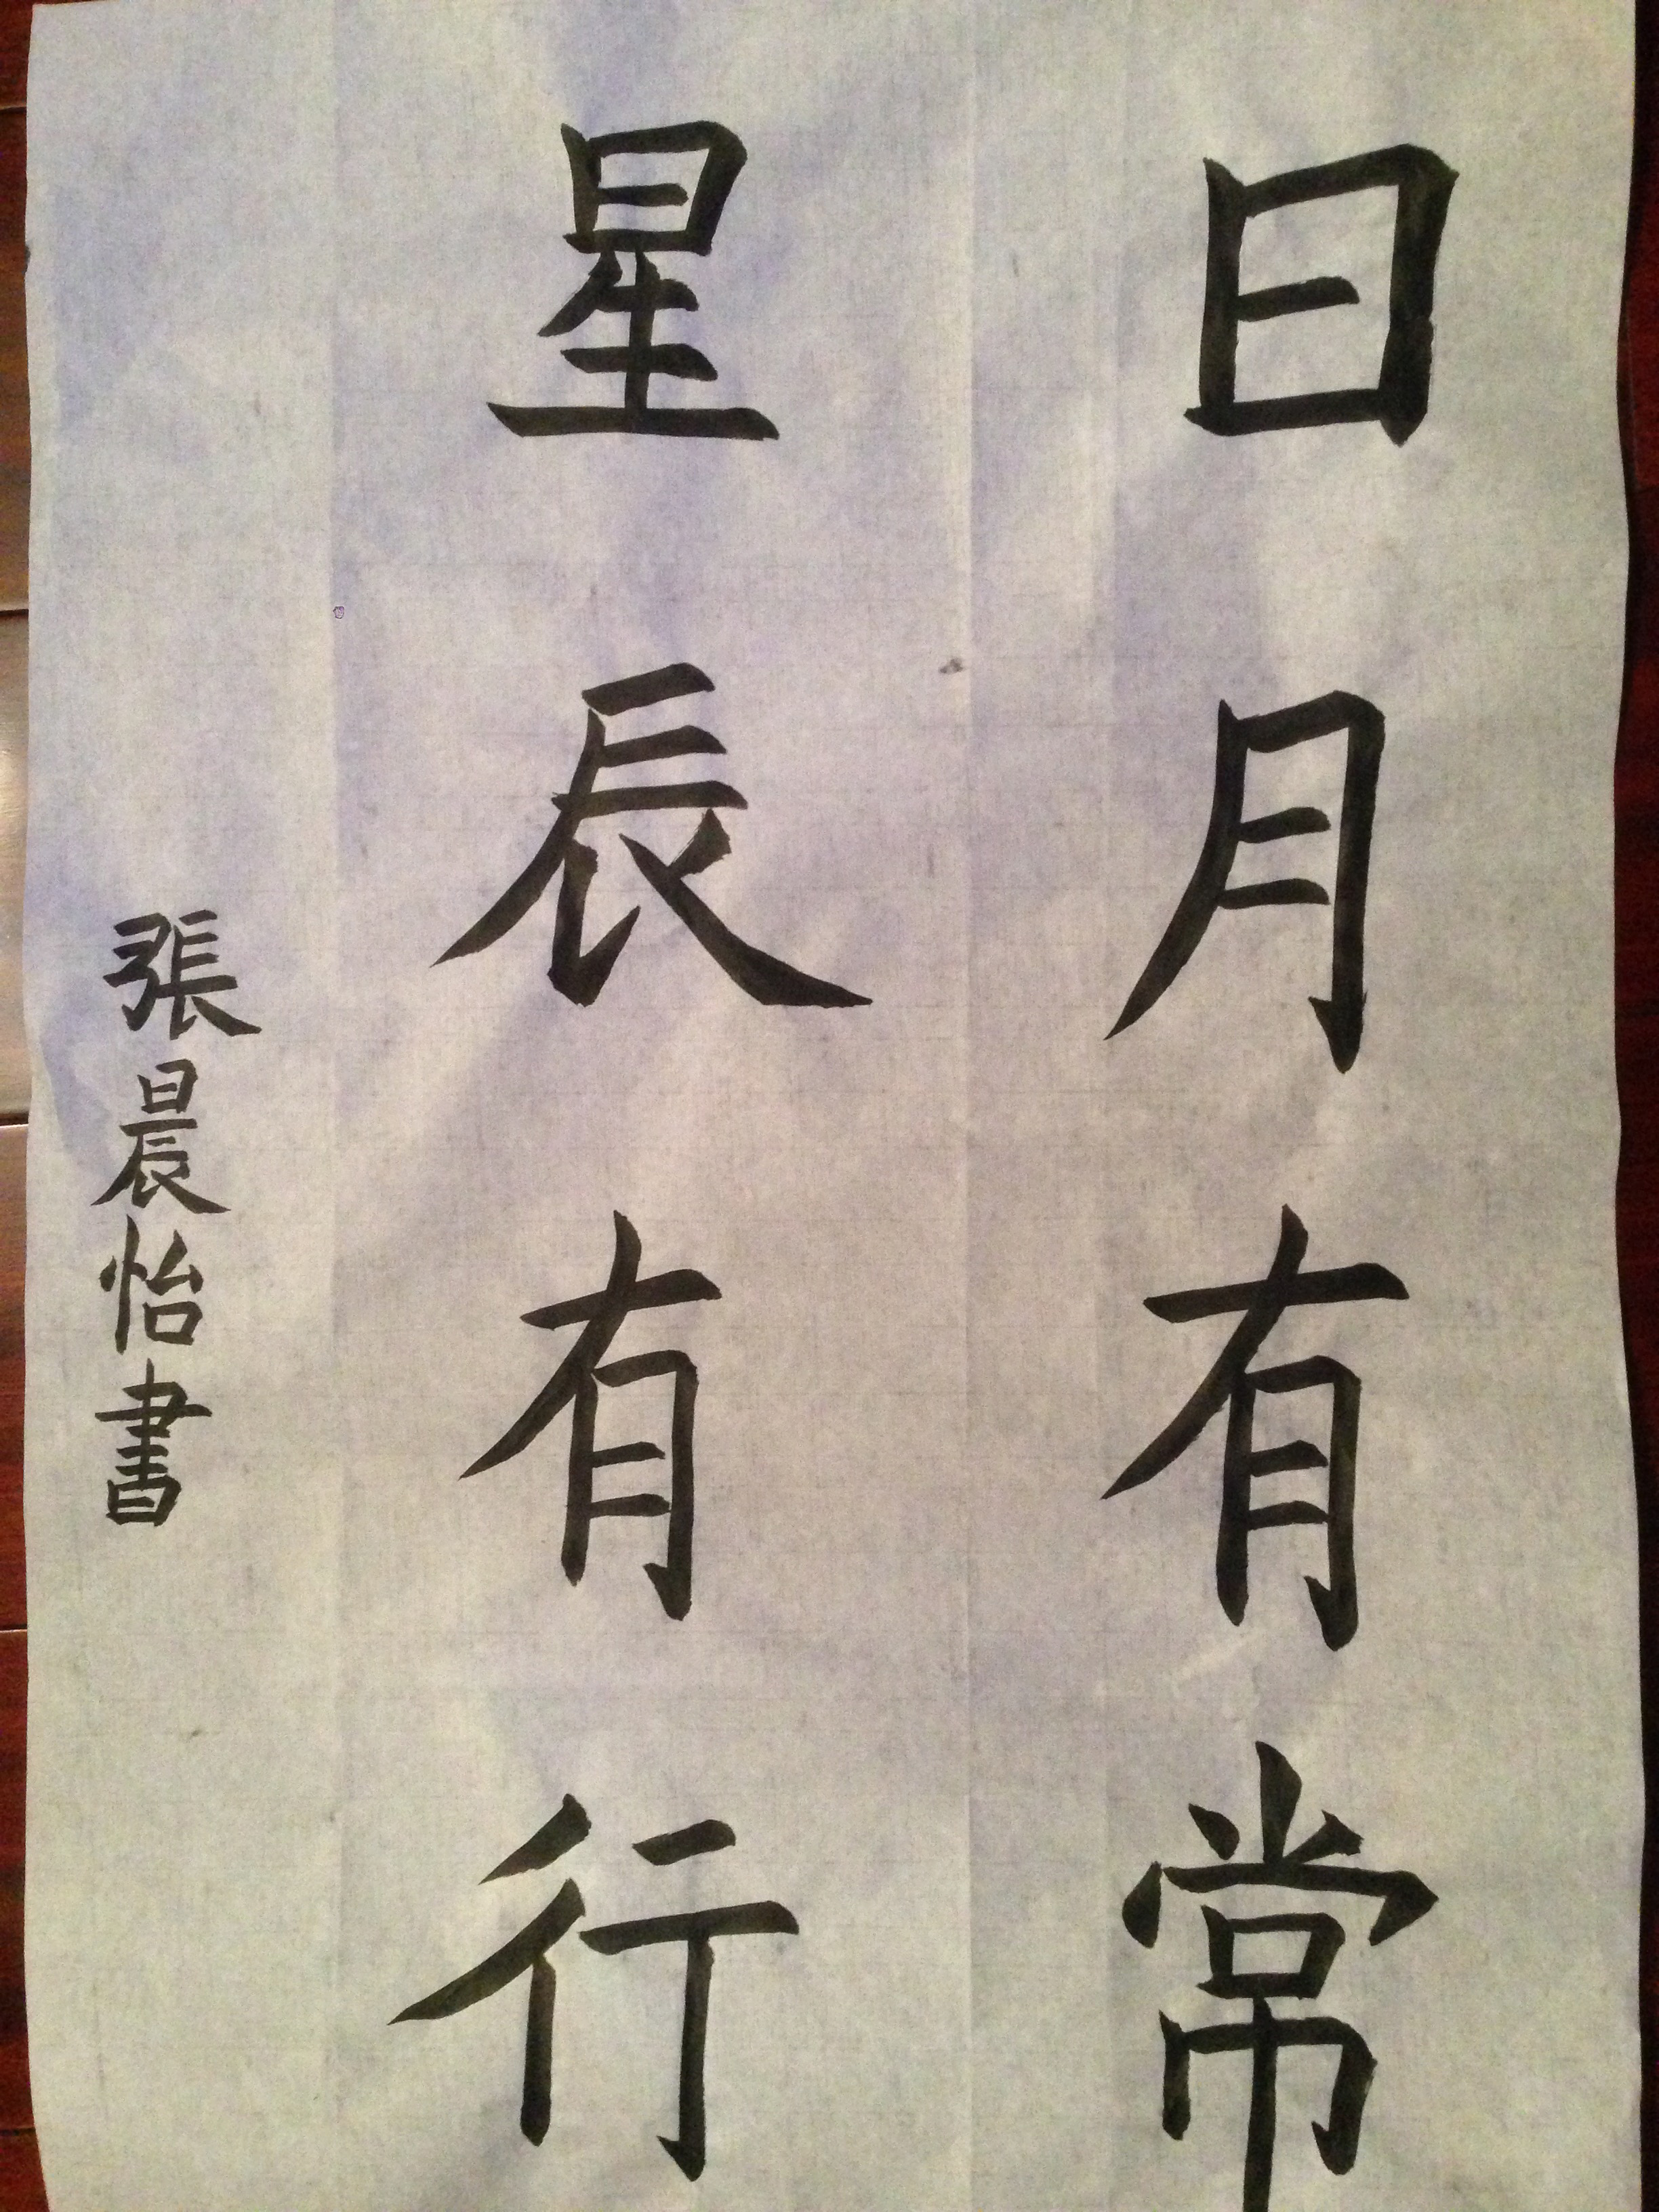 日月有常
星辰有行
張晨怡書